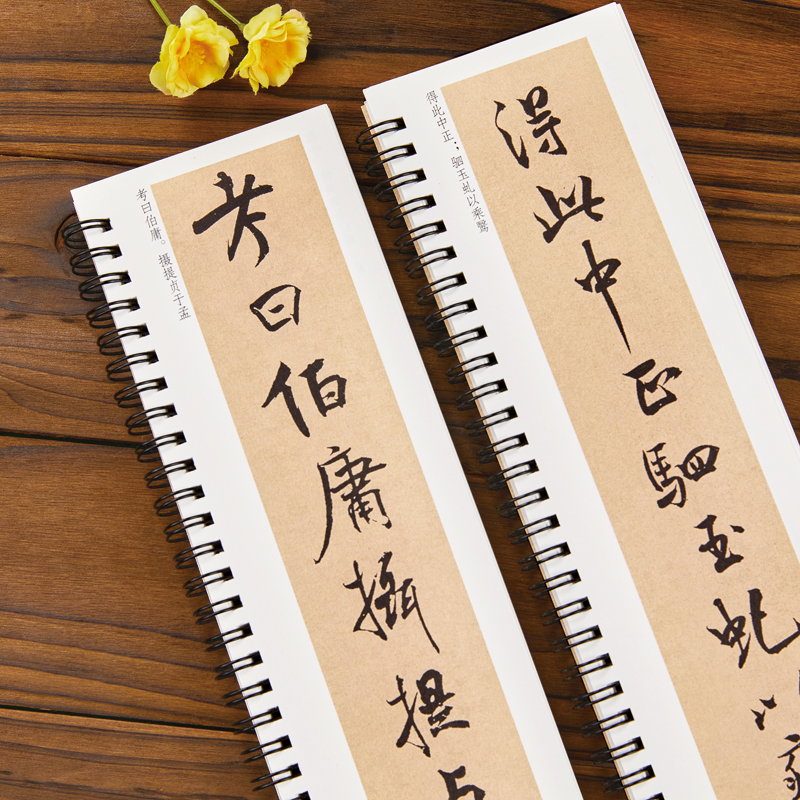 考曰伯庸。摄提贞于孟
考曰伯庸攝提
得此中正；驷玉虬以乘鹥
得此中正駟玉虬以